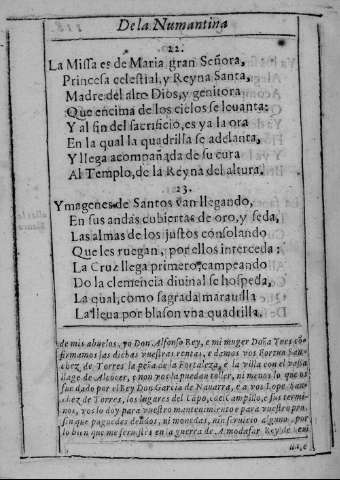 De la Numantina
22.
La Missa es de Maria gran Señora,
Princesa celestial, y Reyna Santa,
Madre del alto Dios, y genitora
Que encima de los cielos se leuanta:
Y al fin del sacrificio, es ya la ora
En la qual la quadrilla se adelanta,
Y llega acompañada de su cura
Al Templo, de la Reyna del altura.
23.
Ymagenes de Santos van llegando,
En sus andas cubiertas de oro, y seda,
Las almas de los justos consolando
Que les ruegan, por ellos interceda:
La Cruz llega primero, campeando
Do la clemencia diuinal se hospeda,
La qual, como sagrada marauilla
La lleua por blason vna quadrilla.
de mis abuelos, yo Don Alfonso Rey, e mi muger Doña Ynes cõ-
firmamos las dichas vuestras rentas, e damos vos Fortun San-
chez de Torres la peña de la Fortaleza, e la villa con el vassa
llage de Alcocer, e non vos la puedan toller, ni menos lo que os
fue dado por el Rey Don Garcia de Nauarra, e a vos Lope San-
chez de Torres, los lugares del Capo, e el Campillo, e sus termi-
nos, vos lo doy para vuestro mantenimiento e para vuestro pro,
sin que paguedes dendos, ni monedas, nin seruicio alguno, por
lo bien que me seruistes en la guerra de Almodafar Rey de Seui